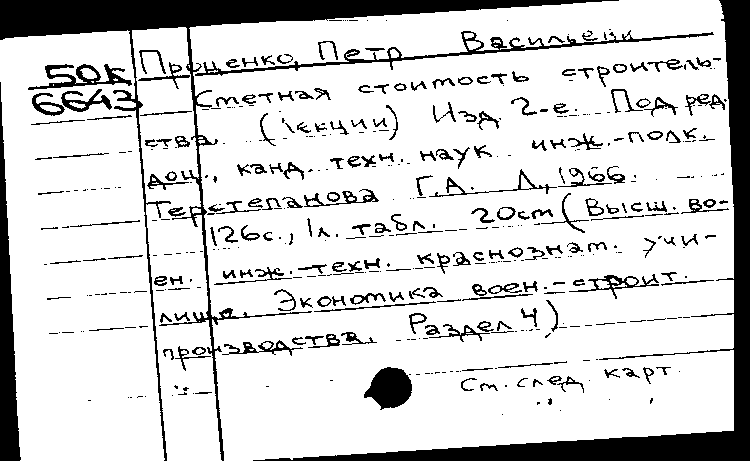 50К
6643
Проценко, Петр Васильевич
Сметная стоимость строитель-
ства. (Лекции) Изд. 2-е. Под ред.
доц., канд. техн. наук инж.-полк.
Терстепанова Г.А. Л., 1966.
126с., 1л. табл. 20см (Высш. во-
ен. инж.-техн. краснознам. учи-
лище. Экономика воен.-строит.
производства. Раздел 4)
См. след. карт.